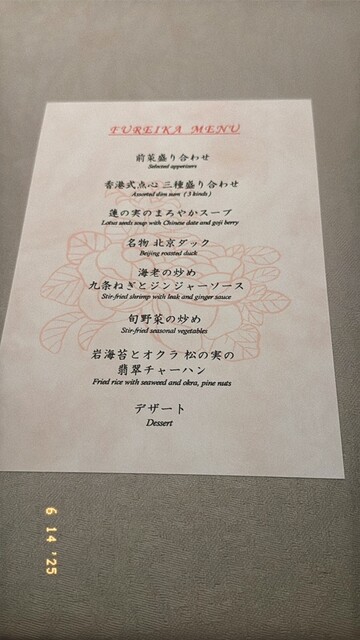 FUREIKA MENU
前菜盛り合わせ
Selected appetizers
香港式点心 三種盛り合わせ
Assorted dim sum ( 3 kinds )
蓮の実のまろやかスープ
Lotus seeds soup with Chinese date and goji berry
名物 北京ダック
Beijing roasted duck
海老の炒め
九条ねぎとジンジャーソース
Stir-fried shrimp with leak and ginger sauce
旬野菜の炒め
Stir-fried seasonal vegetables
岩海苔とオクラ 松の実の
翡翠チャーハン
Fried rice with seaweed and okra, pine nuts
デザート
Dessert
6 14 '25